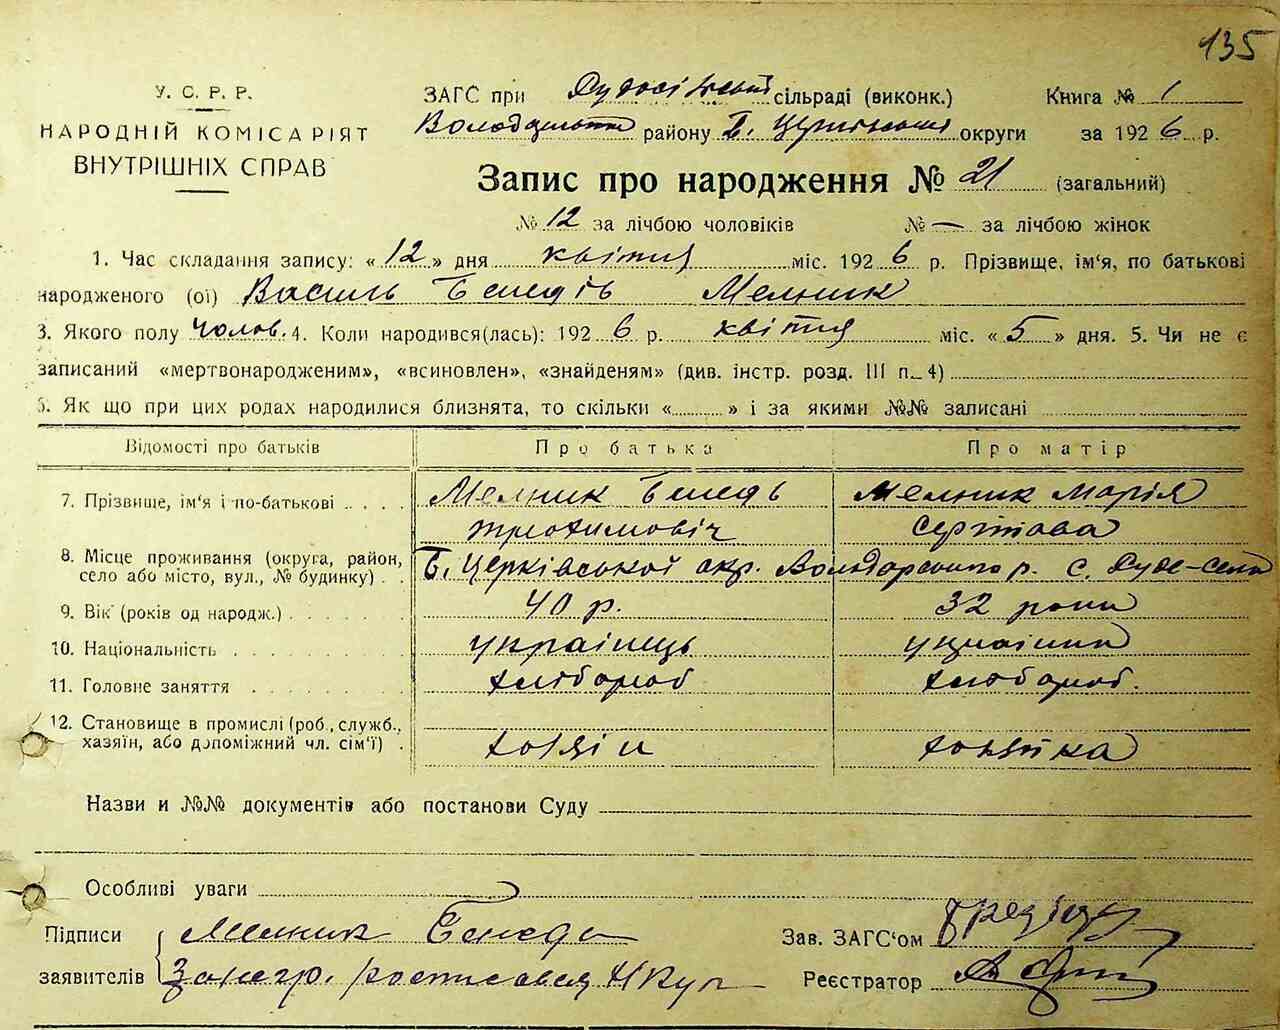 135
У. С. Р. Р.
НАРОДНІЙ КОМІСАРІЯТ
ВНУТРІШНІХ СПРАВ
ЗАГС при сільраді (виконк.) Книга № 1
району Б. округи за 1926 р.
Запис про народження № 21 (загальний)
№ 12 за лічбою чоловіків № — за лічбою жінок
1. Час складання запису: «12» дня квітня міс. 1926 р. Прізвище, ім'я, по батькові
народженого (ої) Василь Мельник
3. Якого полу чолов. 4. Коли народився(лась): 1926 р. квітня міс. «5» дня. 5. Чи не є
записаний «мертвонародженим», «всиновлен», «знайденям» (див. інстр. розд. III п. 4)
5. Як що при цих родах народилися близнята, то скільки « » і за якими №№ записані
Відомості про батьків Про батька Про матір
7. Прізвище, ім'я і по-батькові . . . . Мелник Мелник Марія
8. Місце проживання (округа, район, село або місто, вул., № будинку) . . Б. Церківської окр. Володарського р. с.
9. Вік (років од народж.) 40 р. 32 роки
10. Національність українець українка
11. Головне заняття хлібороб хлібороб.
12. Становище в промислі (роб., служб., хазяїн, або допоміжний чл. сім'ї) . хазяїн хазяйка
Назви и №№ документів або постанови Суду
Особливі уваги
Підписи Мелник
заявителів
Зав. ЗАГС'ом
Реєстратор